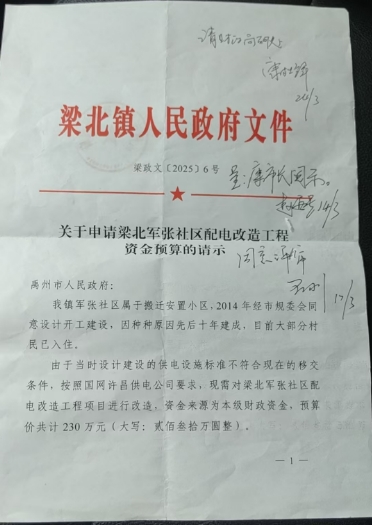 24/3
梁北镇人民政府文件
梁政文〔2025〕6号
呈:康市长阅示。
14/3
关于申请梁北军张社区配电改造工程
资金预算的请示
12/3
禹州市人民政府:
我镇军张社区属于搬迁安置小区,2014年经市规委会同
意设计开工建设,因种种原因先后十年建成,目前大部分村
民已入住。
由于当时设计建设的供电设施标准不符合现在的移交
条件,按照国网许昌供电公司要求,现需对梁北军张社区配
电改造工程项目进行改造,资金来源为本级财政资金,预算
价共计230万元(大写:贰佰叁拾万圆整)。
—1—